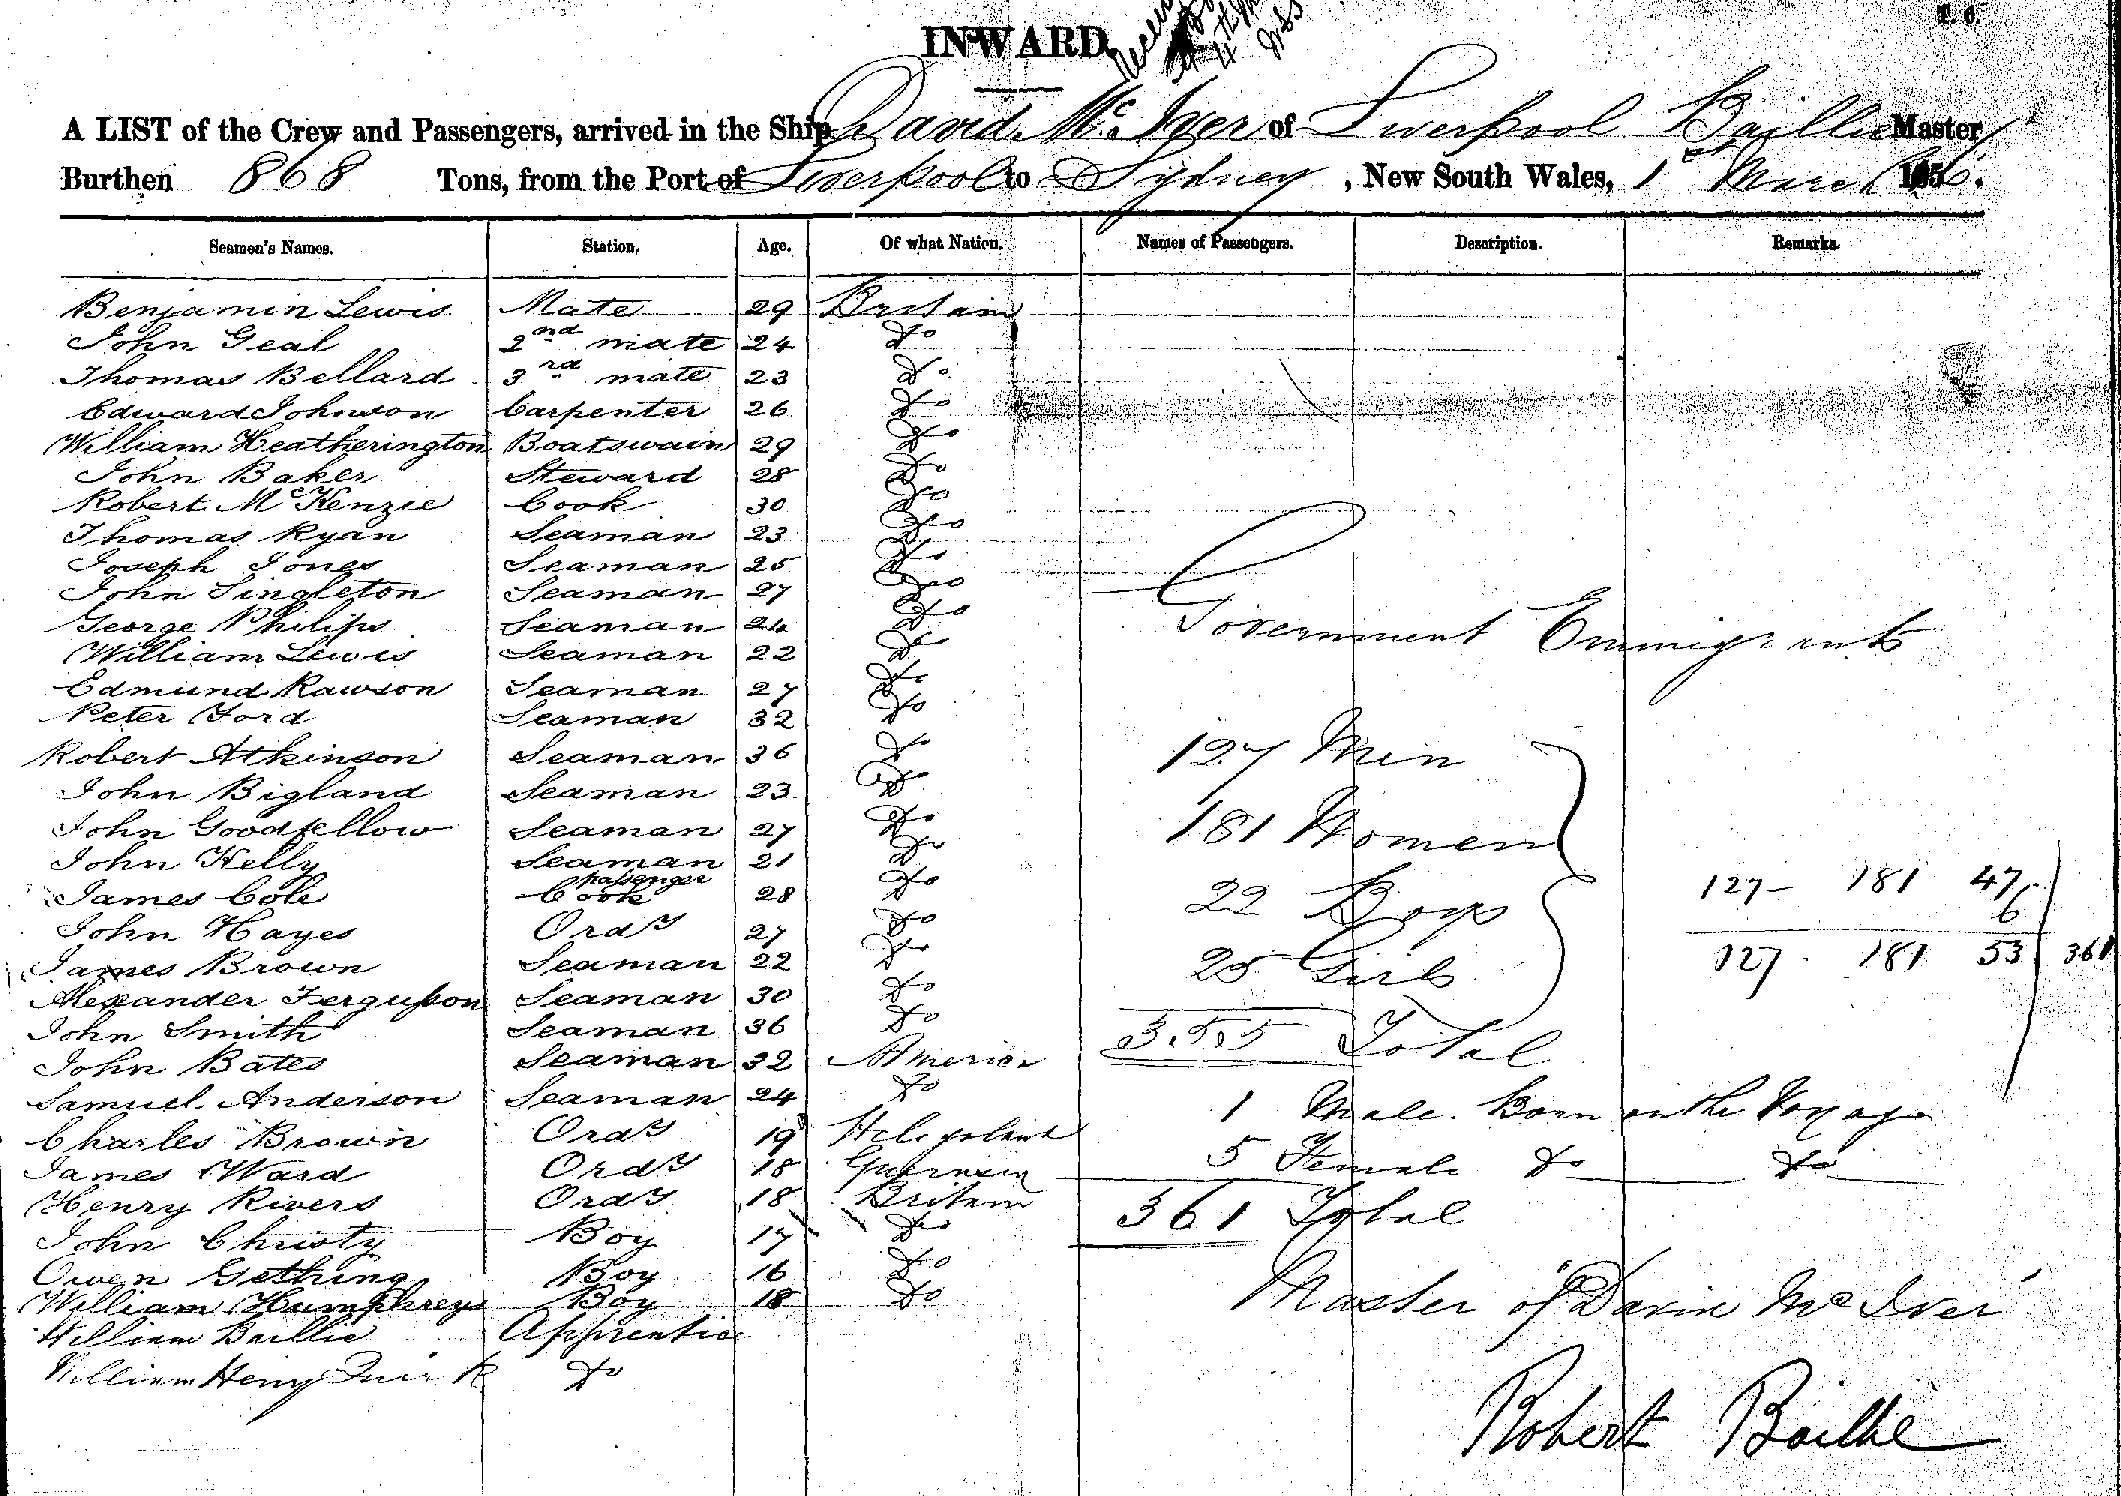 INWARD
A LIST of the Crew and Passengers, arrived in the Ship David McIver of Liverpool Baillie Master
Burthen 868 Tons, from the Port of Liverpool to Sydney, New South Wales, 1 March 185
Seamen's Names. Station. Age. Of what Nation. Names of Passengers. Description. Remarks.
Benjamin Lewis Mate 29 Britain
John Geal 2nd mate 24 Do
Thomas Bellard 3rd mate 23 Do
Edward Johnson Carpenter 26 Do
William Heatherington Boatswain 29 Do
John Baker Steward 28 Do
Robert McKenzie Cook 30 Do
Thomas Ryan Seaman 23 Do
Joseph Jones Seaman 25 Do
John Singleton Seaman 27 Do
George Philips Seaman 24 Do
William Lewis Seaman 22 Do
Edmund Rawson Seaman 27 Do
Peter Ford Seaman 32 Do
Robert Atkinson Seaman 36 Do
John Bigland Seaman 23 Do
John Goodfellow Seaman 27 Do
John Kelly Seaman 21 Do
James Cole passenger Cook 28 Do
John Hayes Ordy 27 Do
James Brown Seaman 22 Do
Alexander Ferguson Seaman 30 Do
John Smith Seaman 36 Do
John Bates Seaman 32 America
Samuel Anderson Seaman 24 Do
Charles Brown Ordy 19
James Ward Ordy 18 Guernsey
Henry Rivers Ordy 18 Britain
John Christy Boy 17 Do
Owen Gething Boy 16 Do
William Humphreys Boy 18 Do
William Baillie Apprentice
William Henry Do
Government Emmigrants
127 Men
181 Women
22 Boys
25 Girls
355 Total
1 Male Born on the Voyage
5 Female Do Do
361 Total
127 - 181 47
6
127 181 53 361
Master of David McIver
Robert Baillie